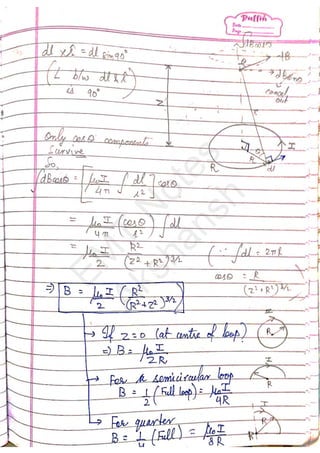 Puffin
dl x r̂ = dl sin90°
(∠ b/w dl & r̂
is 90°)
Only cosθ components
Survive
So,
∫dBcosθ = [μ₀I/4π ∫ dl/r²] cosθ
= μ₀I/4π (cosθ/r²) ∫dl
= μ₀I/2 R²/(Z²+R²)^3/2 (∵ ∫dl = 2πR
cosθ = R/(Z²+R²)^1/2
⇒ B = μ₀I/2 (R²/(R²+Z²)^3/2)
→ If z=0 (at centre of loop)
⇒ B = μ₀I/2R
→ For semicircular loop
B = 1/2 (Full loop) = μ₀I/4R
→ For quarter
B = 1/4 (Full) = μ₀I/8R